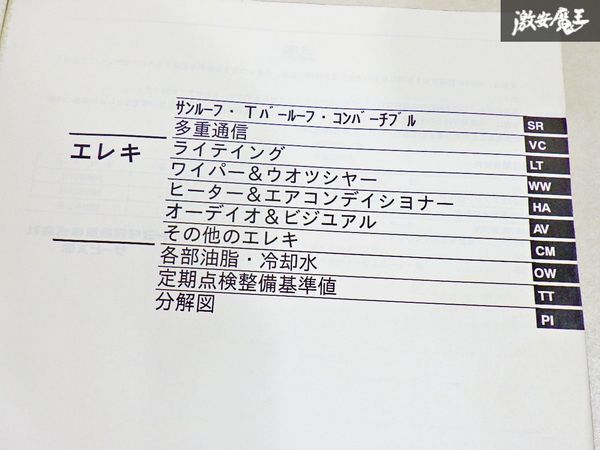 激安魔王
サンルーフ・Tバールーフ・コンバーチブル SR
多重通信 VC
エレキ
ライテイング LT
ワイパー＆ウオツシヤー WW
ヒーター＆エアコンデイショナー HA
オーデイオ＆ビジユアル AV
その他のエレキ CM
各部油脂・冷却水 OW
定期点検整備基準値 TT
分解図 PI